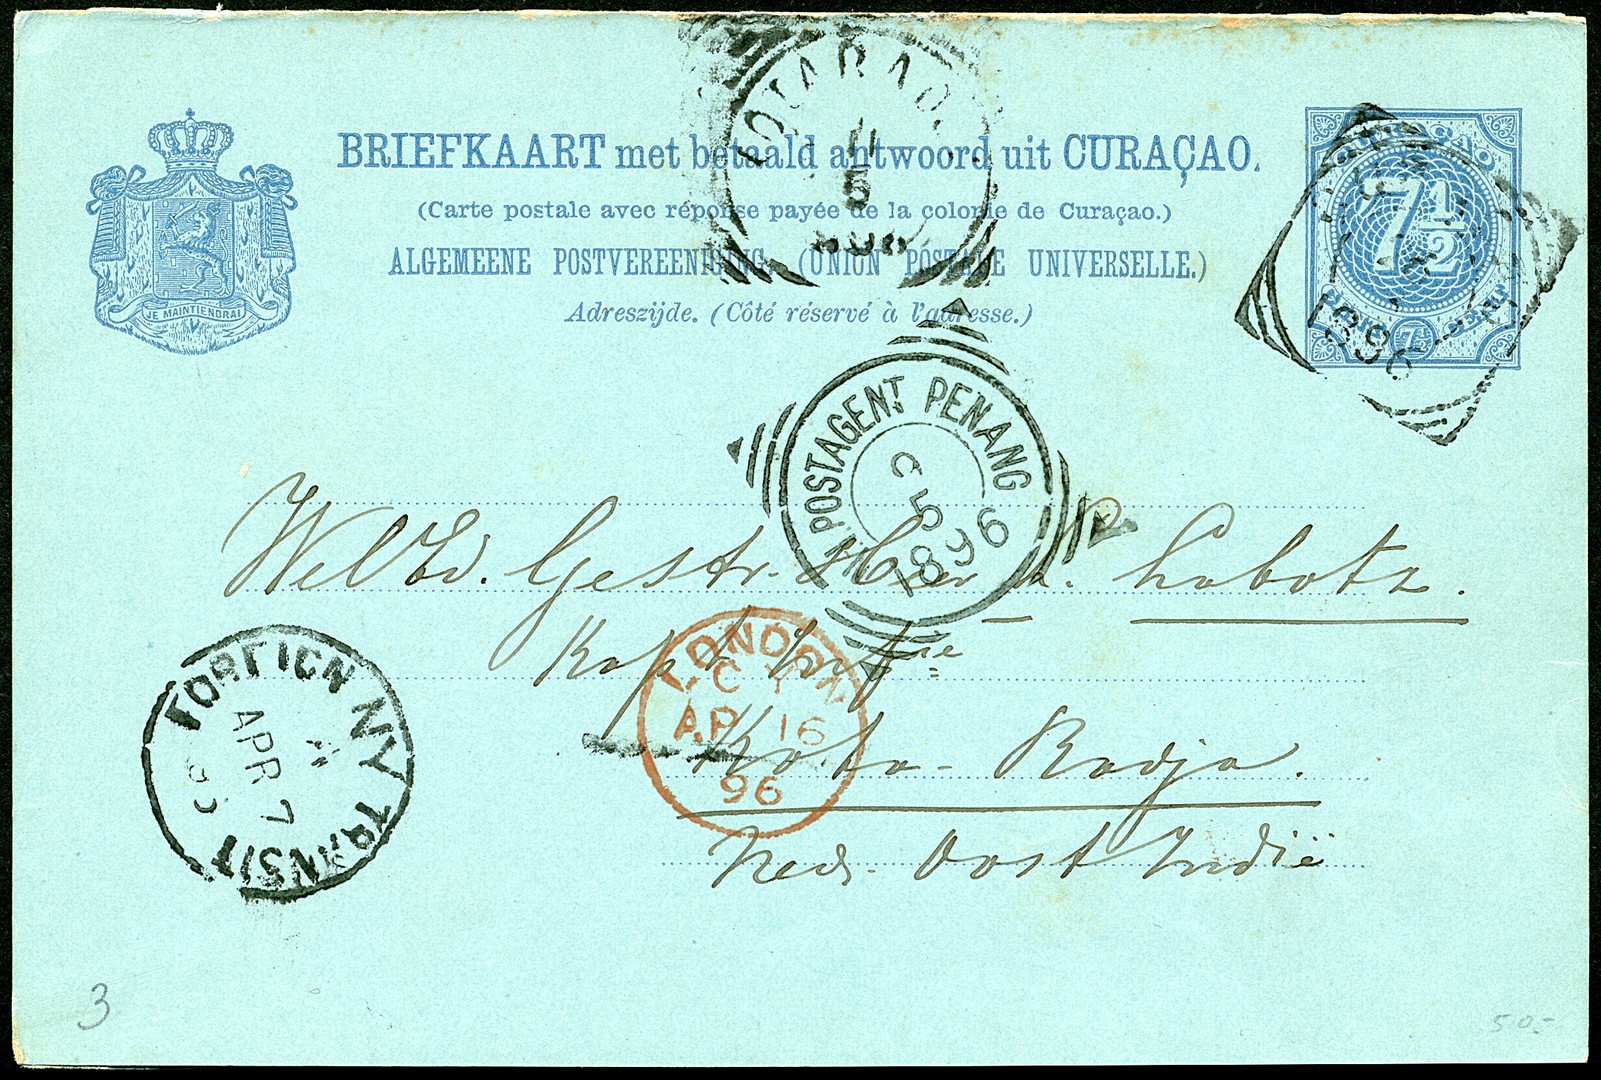 BRIEFKAART met betaald antwoord uit CURAÇAO.
(Carte postale avec réponse payée de la colonie de Curaçao.)
ALGEMEENE POSTVEREENIGING. (UNION POSTALE UNIVERSELLE.)
Adreszijde. (Côté réservé à l'adresse.)
JE MAINTIENDRAI
CURAÇAO
7½
7½
1896
KOTARADJA
11
5
896
N POSTAGENT PENANG
5
1896
WelEd. Gestr. Heer Labotz.
Kapt. Infie
Kota-Radja.
Ned. Oost Indië
LONDON
AP 16
96
FOREIGN NY TRANSIT
APR 7
3
50.-